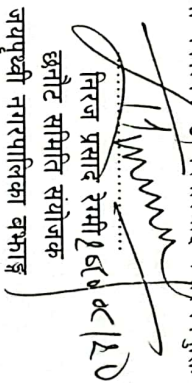 निरज प्रसाद रेग्मी
छनौट समिति संयोजक
जयपृथ्वी नगरपालिका बझाङ्ग